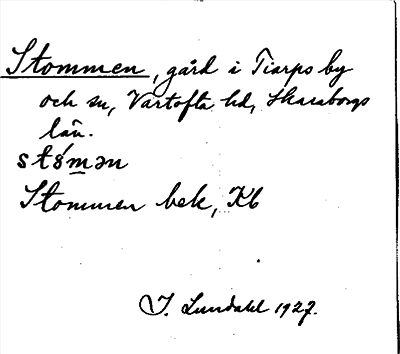 Stommen, gård i Tiarps by
och sn, Vartofta hd, Skaraborgs
län.
stómən
Stommen bek, Kb
I. Lundahl 1927.